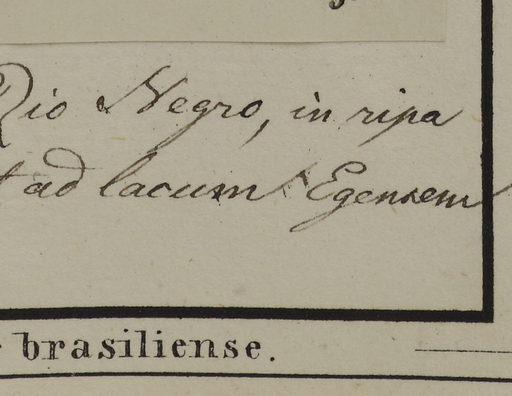 Rio Negro, in ripa
ad lacum Egensem
brasiliense.